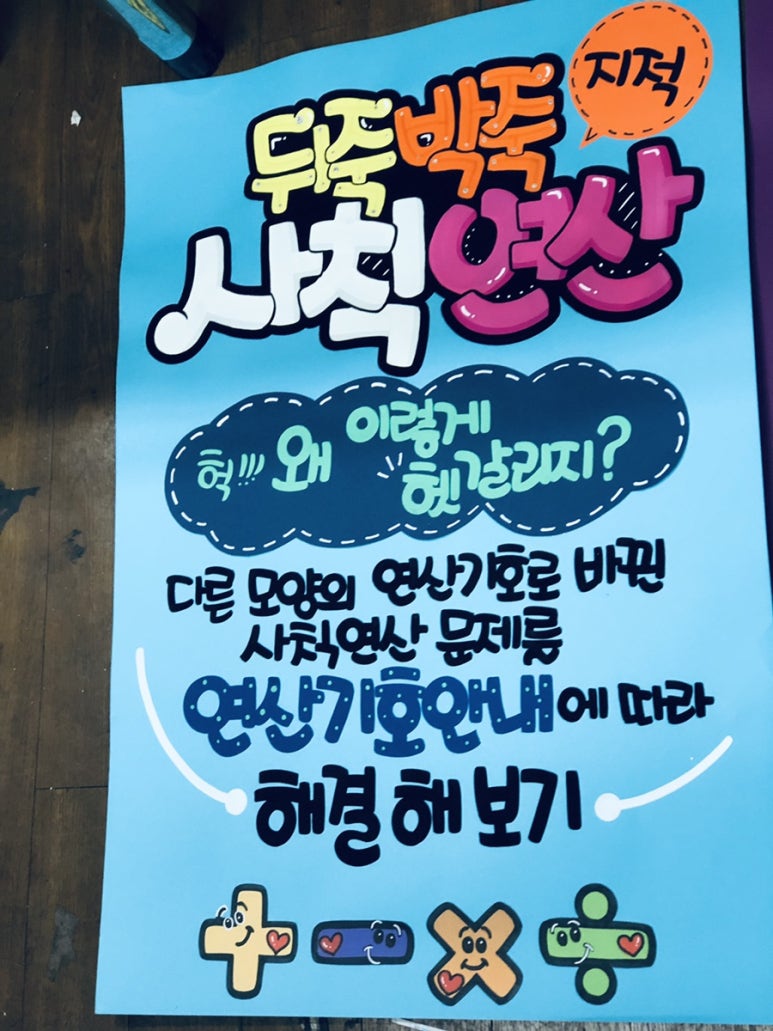 지적
뒤죽박죽
사칙연산
헉!!! 왜 이렇게
헷갈리지?
다른 모양의 연산기호로 바뀐
사칙연산 문제를
연산기호안내에 따라
해결해보기
+ - × ÷